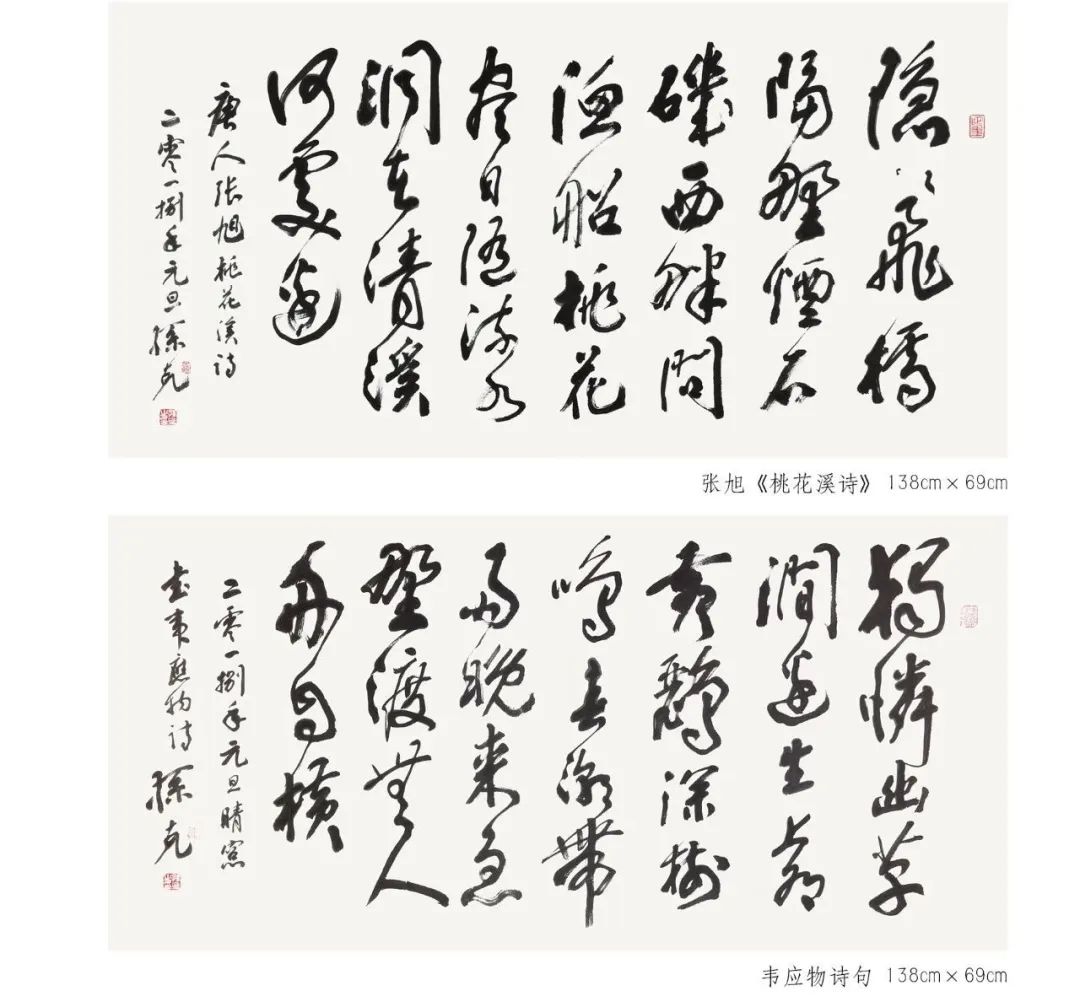 隐〻飛橋
隔野煙石
磯西畔問
漁船桃花
盡日随流水
洞在清溪
何處邊
唐人张旭桃花溪诗
二零一捌年元旦 孫克
张旭《桃花溪诗》 138cm×69cm
獨憐幽草
澗邊生上有
黄鸝深樹
鳴春潮帶
雨晚来急
野渡無人
舟自横
二零一捌年元旦晴窓
书韦應物诗 孫克
韦应物诗句 138cm×69cm